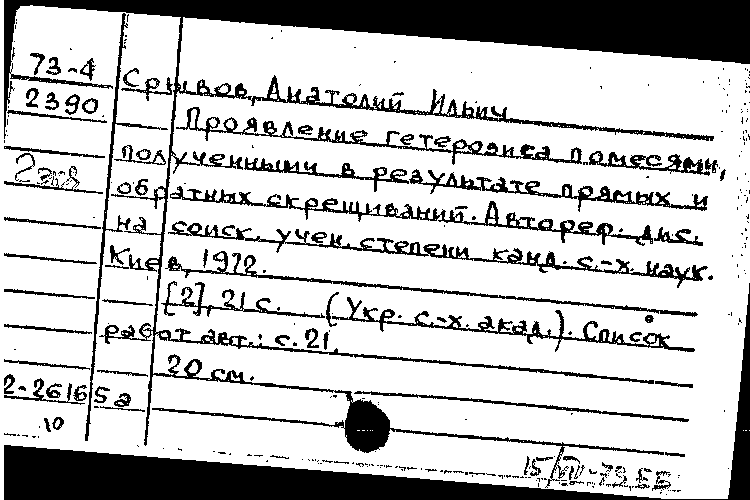 73-4
2390
Срывов, Анатолий Ильич
Проявление гетерозиса помесями,
2 экз
полученными в результате прямых и
обратных скрещиваний. Автореф. дис.
на соиск. учен. степени канд. с.-х. наук.
Киев, 1972.
[2], 21 с. (Укр. с.-х. акад.). Список
работ авт.: с. 21.
20 см.
2-26165а
10
15/VII-73